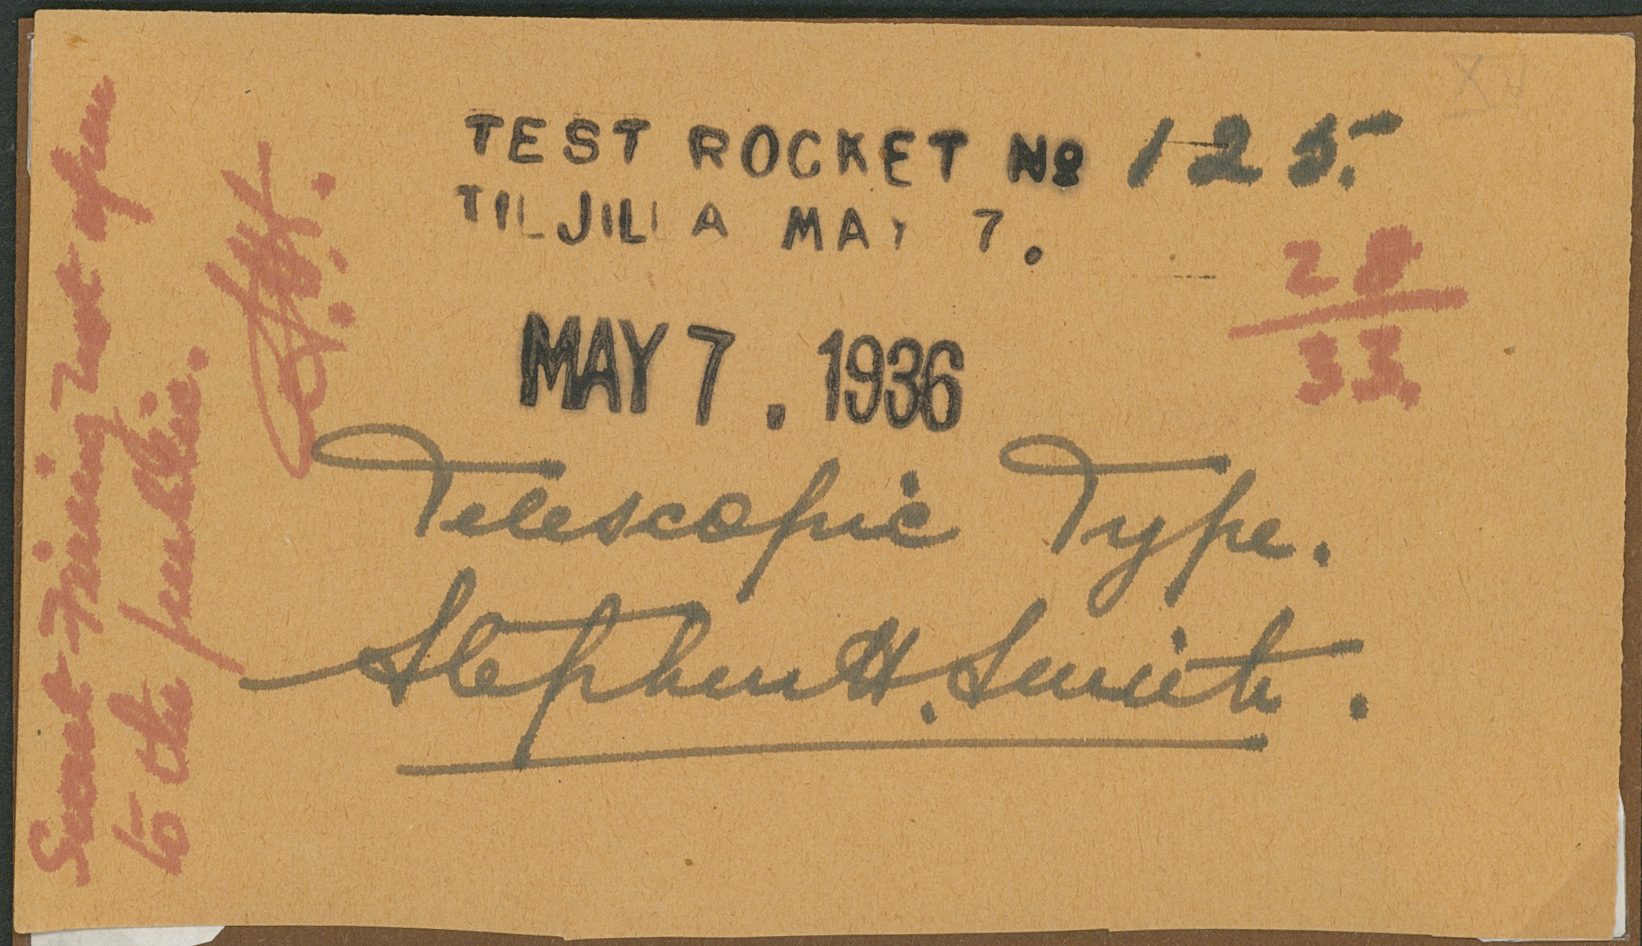 TEST ROCKET No 125.
TILJILLA MAY 7.
28
33.
MAY 7. 1936
Telescopic Type.
Stephen H. Smith.
Secret Firing not open
to the public.
S.H.S.
XV